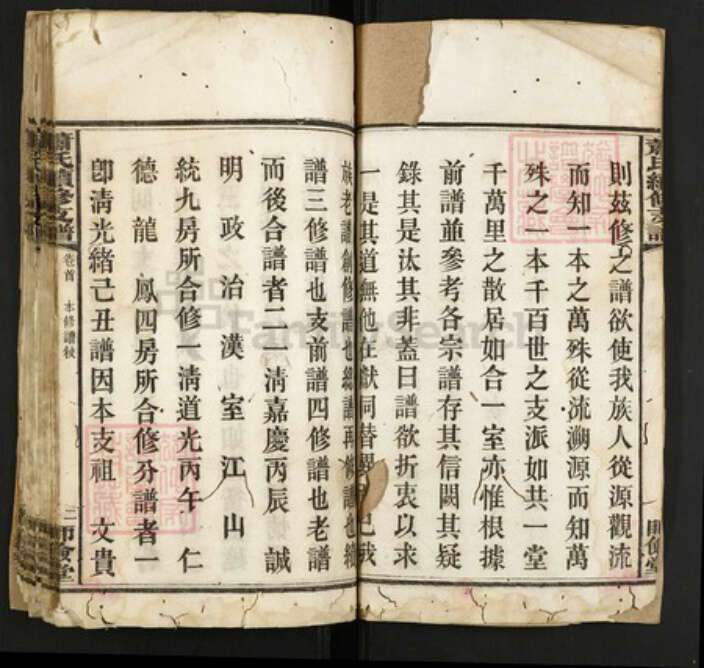 蕭氏續修支譜
則茲修之譜欲使我族人從源觀流
而知一本之萬殊從流溯源而知萬
殊之一本千百世之支派如共一堂
千萬里之散居如合一室亦惟根據
前譜並參考各宗譜存其信闕其疑
錄其是汰其非蓋曰譜欲折衷以求
一是其道無他在獻同替異
族老譜創修譜也總譜再修譜也續
譜三修譜也支前譜四修譜也老譜
而後合譜者二清嘉慶丙辰 誠
明政治漢室江山
統九房所合修一清道光丙午 仁
德龍 鳳四房所合修分譜者一
卽淸光緒己丑譜因本支祖 文貴
蕭氏續修支譜
卷首 本修譜敘
二
師儉堂
FamilySearch